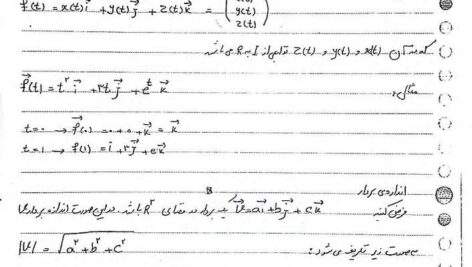 f⃗(t) = x(t)i⃗ + y(t)j⃗ + z(t)k⃗ = ( x(t) y(t) z(t) )
که در آن x(t) و y(t) و z(t) توابعی از I به R می باشد
مثال:
f⃗(t) = t²i⃗ + ۳tj⃗ + eᵗk⃗
t=۰ → f⃗(۰) = ۰ + ۰ + k⃗ = k⃗
t=۱ → f⃗(۱) = i⃗ + ۳j⃗ + ek⃗
اندازه ی بردار
فرض کنید V⃗ = ai⃗ + bj⃗ + ck⃗ یک بردار در فضای R³ باشد، در این صورت اندازه بردار V
به صورت زیر تعریف می شود:
|V| = √(a² + b² + c²)